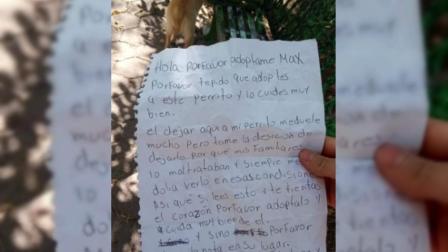 Hola Porfavor adoptame Max
Porfavor te pido que adoptes
a este perrito y lo cuides muy
bien.
el dejar aqui a mi perrito me duele
mucho Pero tome la desicion de
dejarlo Por que mis Familiares
lo maltrataban y siempre me
dolia verlo en esas condiciones
asi que si lees esto y te tientas
el corazon Porfavor adoptalo y
cuida muy bien de el.
y sino Porfavor
la nota en su lugar.